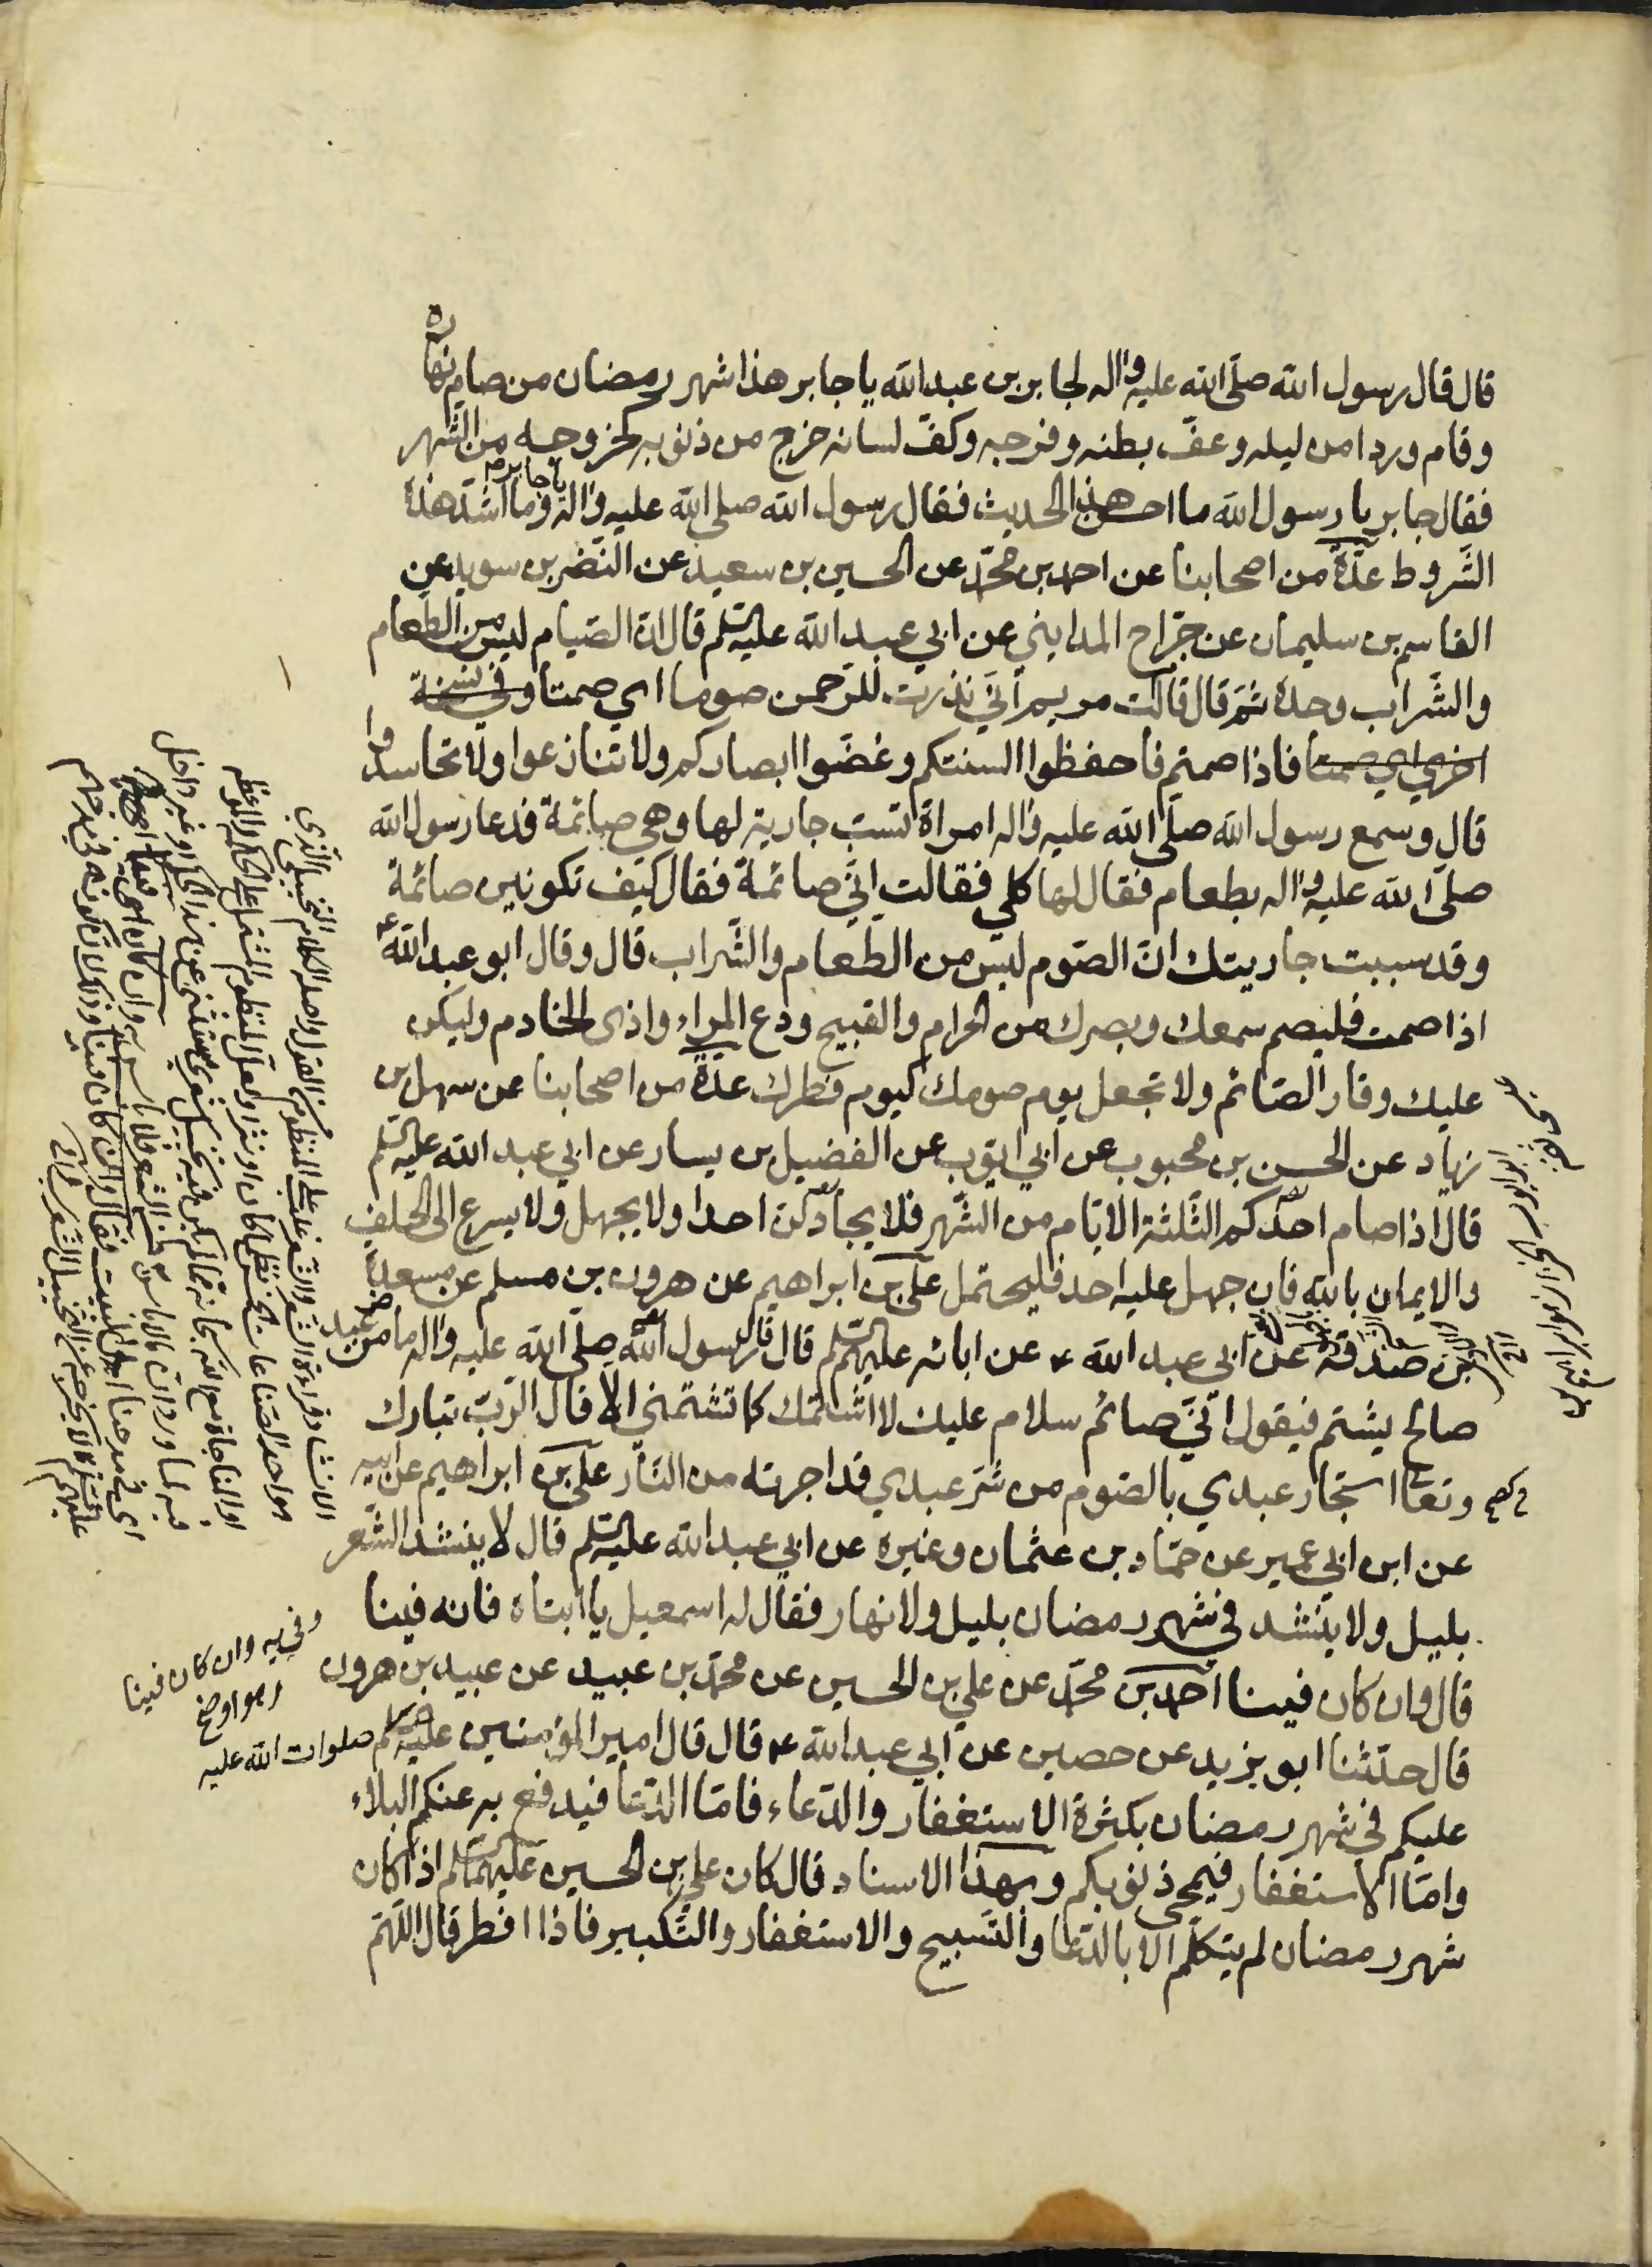 قال قال رسول الله صلّى الله عليه واله لجابر بن عبد الله يا جابر هذا شهر رمضان من صام نهاره
وقام وردا من ليله وعفّ بطنه وفرجه وكفّ لسانه خرج من ذنوبه كخروجه من الشّهر
فقال جابر يا رسول الله ما احسن هذا الحديث فقال رسول الله صلى الله عليه واله يا جابر وما اشدّ هذه
الشّروط عدّة من اصحابنا عن احمد بن محمّد عن الحسين بن سعيد عن النّضر بن سويد عن
القاسم بن سليمان عن جرّاح المدايني عن ابي عبد الله عليه السّلم قال انّ الصّيام ليس من الطّعام
والشّراب وحده ثمّ قال قالت مريم انّي نذرت للرّحمن صوما اي صمتا وفي نسخة
اخرى اي صمتا فاذا صمتم فاحفظوا السنتكم وغضّوا ابصاركم ولا تنازعوا ولا تحاسدوا
قال وسمع رسول الله صلّى الله عليه واله امراة تسبّ جارية لها وهي صائمة فدعا رسول الله
صلّى الله عليه واله بطعام فقال لها كلي فقالت انّي صائمة فقال كيف تكونين صائمة
وقد سببت جاريتك انّ الصّوم ليس من الطّعام والشّراب قال وقال ابو عبد الله ع
اذا صمت فليصم سمعك وبصرك من الحرام والقبيح ودع المراء واذى الخادم وليكن
عليك وقار الصّائم ولا تجعل يوم صومك كيوم فطرك عدّة من اصحابنا عن سهل بن
زياد عن الحسن بن محبوب عن ابي ايّوب عن الفضيل بن يسار عن ابي عبد الله عليه السّلم
قال اذا صام احدكم الثّلثة الايّام من الشّهر فلا يجادلن احدا ولا يجهل ولا يسرع الى الحلف
والايمان بالله فان جهل عليه احد فليحتمل علي بن ابراهيم عن هرون بن مسلم عن مسعدة
بن صدقة عن ابي عبد الله ع عن ابائه عليهم السّلم قال قال رسول الله صلّى الله عليه واله ما من عبد
صالح يشتم فيقول انّي صائم سلام عليك لا اشتمك كما تشتمني الا قال الرّبّ تبارك
وتعالى استجار عبدي بالصّوم من شرّ عبدي قد اجرته من النّار علي بن ابراهيم عن ابيه
عن ابن ابي عمير عن حمّاد بن عثمان وغيره عن ابي عبد الله عليه السّلم قال لا ينشد الشّعر
بليل ولا ينشد في شهر رمضان بليل ولا نهار فقال له اسمعيل يا ابتاه فانه فينا
قال وان كان فينا احمد بن محمّد عن علي بن الحسين عن محمّد بن عبيد عن عبيد بن هرون
قال حدّثنا ابو يزيد عن حصين عن ابي عبد الله ع قال قال امير المؤمنين عليه السّلم صلوات الله عليه
عليكم في شهر رمضان بكثرة الاستغفار والدّعاء فامّا الدّعا فيدفع به عنكم البلاء
وامّا الاستغفار فيمحى ذنوبكم وبهذا الاسناد قال كان علي بن الحسين عليهما السّلم اذا كان
شهر رمضان لم يتكلّم الا بالدّعا والتّسبيح والاستغفار والتّكبير فاذا افطر قال اللّهمّ
وان كان فينا
وهو اوضح